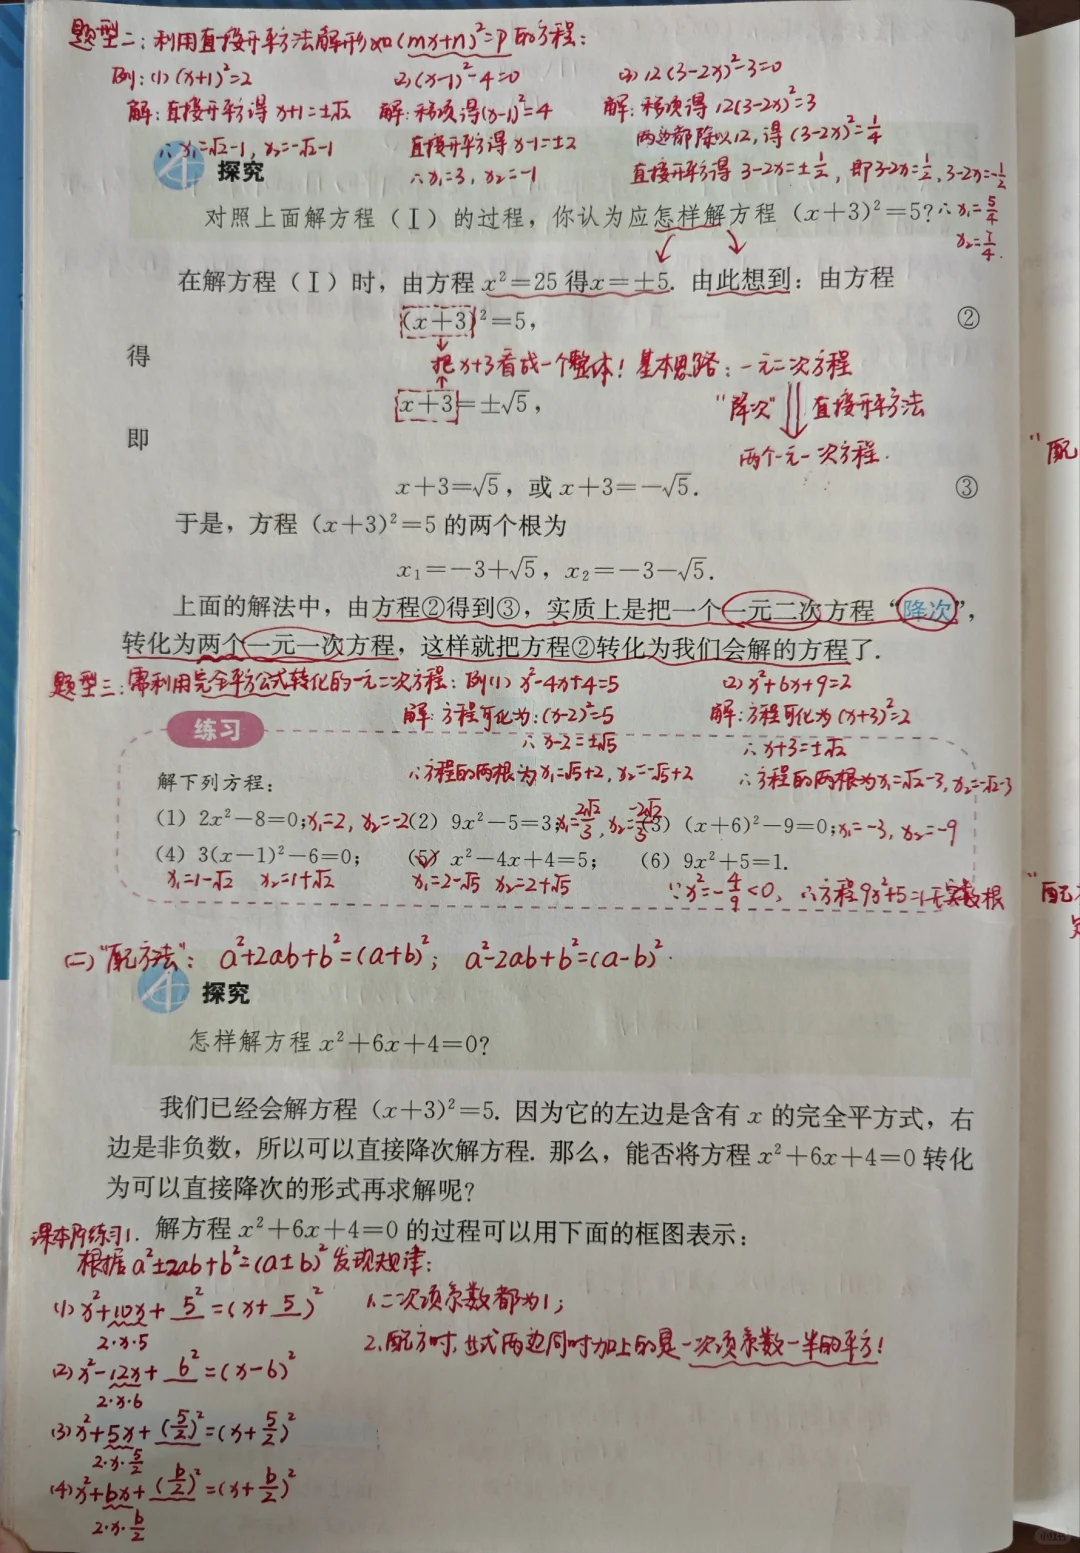 题型二：利用直接开平方法解形如(mx+n)²=p的方程：
例：(1)(x+1)²=2 (2)(x-1)²-4=0 (3)12(3-2x)²-3=0
解：直接开平方得 x+1=±√2 解：移项得(x-1)²=4 解：移项得 12(3-2x)²=3
∴x₁=√2-1, x₂=-√2-1 直接开平方得 x-1=±2 两边都除以12,得 (3-2x)²=1/4
∴x₁=3, x₂=-1 直接开平方得 3-2x=±1/2, 即3-2x=1/2, 3-2x=-1/2
探究
对照上面解方程（Ⅰ）的过程，你认为应怎样解方程（x+3）²=5? ∴x₁=5/4
x₂=7/4.
在解方程（Ⅰ）时，由方程 x²=25 得x=±5. 由此想到：由方程
(x+3)²=5, ②
得 把x+3看成一个整体！基本思路：一元二次方程
x+3=±√5, “降次” 直接开平方法
即 两个一元一次方程.
“配
x+3=√5, 或 x+3=-√5. ③
于是，方程（x+3）²=5 的两个根为
x₁=-3+√5, x₂=-3-√5.
上面的解法中，由方程②得到③，实质上是把一个一元二次方程“降次”，
转化为两个一元一次方程，这样就把方程②转化为我们会解的方程了.
题型三：需利用完全平方公式转化的一元二次方程：例(1) x²-4x+4=5 (2)x²+6x+9=2
解：方程可化为：(x-2)²=5 解：方程可化为(x+3)²=2
练习
∴x-2=±√5 ∴x+3=±√2
解下列方程： ∴方程的两根为x₁=√5+2, x₂=-√5+2 ∴方程的两根为x₁=√2-3, x₂=-√2-3
（1）2x²-8=0; x₁=2, x₂=-2 （2）9x²-5=3; x₁=2√2/3, x₂=-2√2/3 （3）（x+6）²-9=0; x₁=-3, x₂=-9
（4）3(x-1)²-6=0; （5）x²-4x+4=5; （6）9x²+5=1.
x₁=1-√2 x₂=1+√2 x₁=2-√5 x₂=2+√5 ∵x²=-4/9<0, ∴方程9x²+5=1无实数根
“配
(二)“配方法”：a²+2ab+b²=(a+b)²; a²-2ab+b²=(a-b)².
探究
怎样解方程 x²+6x+4=0?
我们已经会解方程（x+3)²=5. 因为它的左边是含有 x 的完全平方式，右
边是非负数，所以可以直接降次解方程. 那么，能否将方程 x²+6x+4=0 转化
为可以直接降次的形式再求解呢？
解方程 x²+6x+4=0 的过程可以用下面的框图表示：
根据a²±2ab+b²=(a±b)²发现规律：
(1)x²+10x+5²=(x+5)² 1.二次项系数都为1;
2·x·5 2.配方时,
(2)x²-12x+6²=(x-6)² 式两边同时加上的是一次项系数一半的平方！
2·x·6
(3)x²+5x+(5/2)²=(x+5/2)²
2·x·5/2
(4)x²+bx+(b/2)²=(x+b/2)²
2·x·b/2